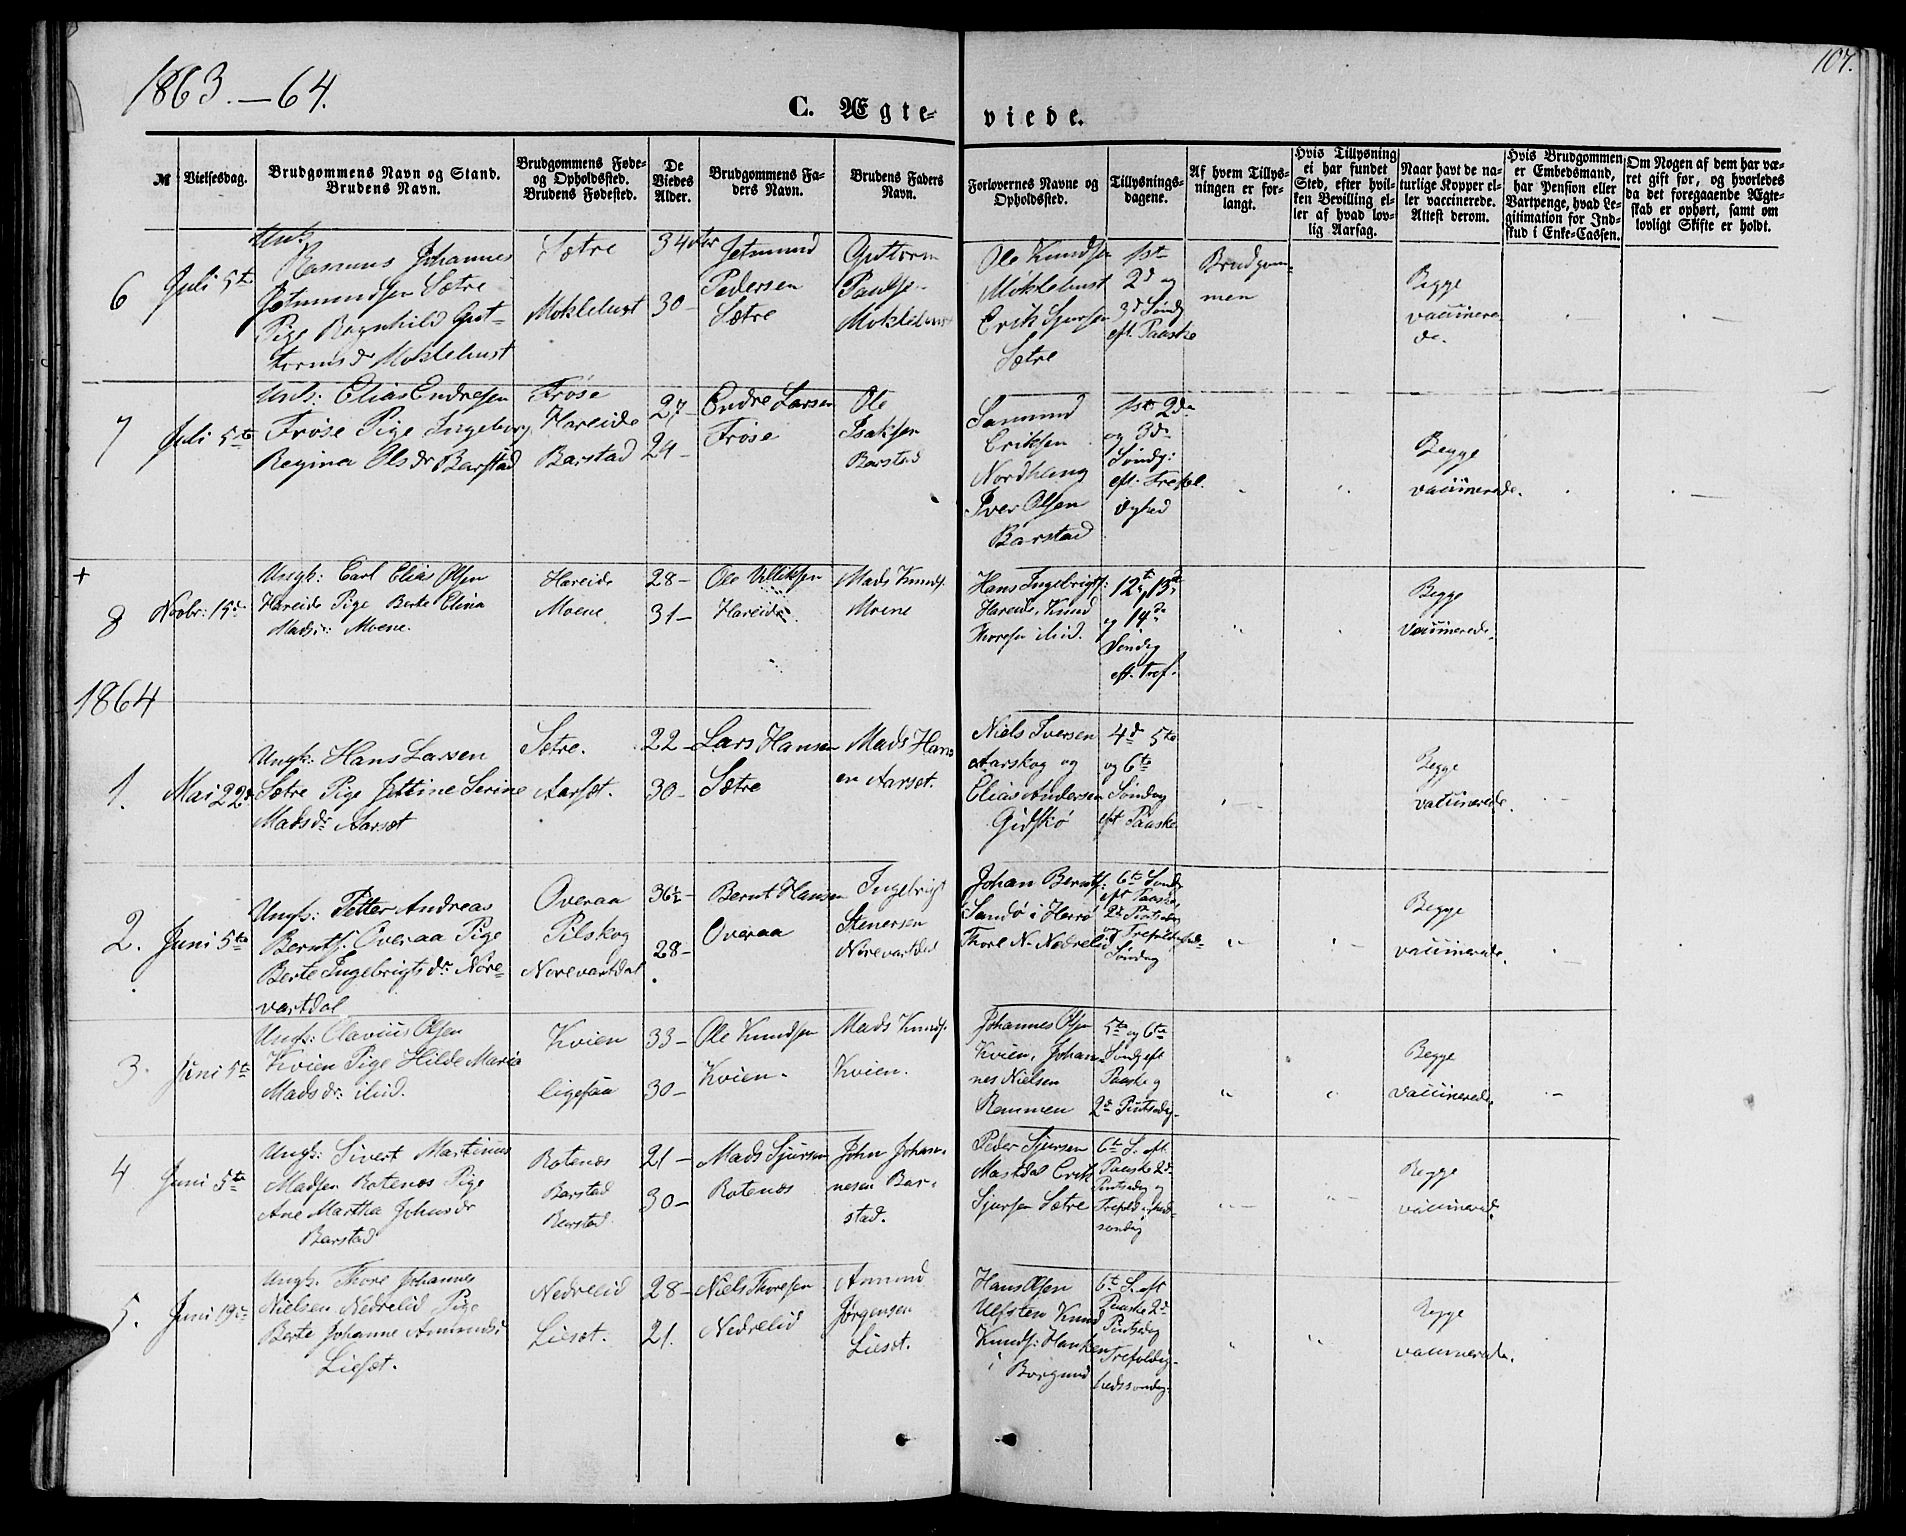 1863.—64.
107.
C. Ægte-
viede.
№
Vielsesdag.
Brudgommens Navn og Stand.
Brudens Navn.
Brudgommens Føde-
og Opholdssted.
Brudens Fødested.
De
Viedes
Alder.
Brudgommens Fa-
ders Navn.
Brudens Faders
Navn.
Forlovernes Navne og
Opholdssted.
Tillysnings-
dagene.
Af hvem Tillys-
ningen er for-
langt.
Hvis Tillysning
ei har fundet
Sted, efter hvil-
ken Bevilling el-
ler af hvad lov-
lig Aarsag.
Naar havt de na-
turlige Kopper el-
ler vaccinerede.
Attest derom.
Hvis Brudgommen
er Embedsmand,
har Pension eller
Vartpenge, hvad Le-
gitimation for Ind-
skud i Enke-Cassen.
Om Nogen af dem har væ-
ret gift før, og hvorledes
da det foregaaende Ægte-
skab er ophørt, samt om
lovligt Skifte er holdt.
6
Juli 5te
Rasmus Johannes
Jetmundsen Sætre
Pige Ragnhild Gut-
tormsdr Moklebust
Sætre
Moklebust
34
30-
Jetmund
Pedersen
Sætre
Guttorm
Moklebust
Ole Knudsen
Moklebust
Erik Sjursen
Sætre
1ste
2d og
3d Søndg
eft. Paaske
Brudgom-
men
Begge
vaccinere-
de.
7
Juli 5te
Ungk: Elias Endresen
Frøse Pige Ingeborg
Regina Olsdr Barstad
Frøse
Hareide
Barstad
27-
24-
Endre Larsen
Frøse
Ole
Isaksen
Barstad
Samund
Eriksen
Nordhaug
Iver Olsen
Barstad
1ste 2de
og 3de
Søndg:
eft. Trefol.
dighed
Begge
vaccinerede.
+
8
Novbr: 15de
Ungk: Carl Elias Olsen
Hareide Pige Berte Elina
Madsdr: Moene.
Hareide
Moene
28-
31-
Ole Villiksen
Hareide
Mads Knuds.
Moene
Hans Ingebrigts:
Hareide, Knud
Thoresen ibid.
12te 13de
og 14de
Søndag
eft. Tref.
Begge
vaccinerede.
1864
1.
Mai 22de
Ungk: Hans Larsen
Sætre Pige Jettine Serine
Madsdr Aarset
Sætre.
Aarset.
22-
30-
Lars Hansen
Sætre
Mads Hans
en Aarset.
Niels Iversen
Aarskog og
Elias Andersen
Gidskø
4de 5te
og 6te
Søndag
eft Paaske
Begge
vaccinerede.
2.
Juni 5te
Ungk: Petter Andreas
Bernts. Overaa Pige
Berte Ingebrigtsdr. Nøre-
vartdal
Overaa
Pilskog
Norevartdal
36½-
28-
Bernt Hansen
Overaa
Ingebrigt
Stenersen
Nørevartdal
Johan Bernts:
Sandø i Herrø
Thore N. Nedrelid
6te Søndg
eft Paaske,
2d Pintsedag
og Trefoldighed-
Søndag
Begge
vaccinerede.
3.
Juni 5te
Ungk: Olavius Olsen
Kvien Pige Hilde Maria
Madsdr: ibid.
Kvien
ligesaa
33-
30-
Ole Knudsen
Kvien.
Mads Knuds.
Kvien.
Johannes Olsen
Kvien, Johan-
nes Nielsen
Remmen
5te og 6te
Søndg eft
Paaske og
2d Pintsedg.
Begge
vaccinerede.
4
Juni 5te
Ungk: Sivert Martinus
Madsen Rotenæs Pige
Ane Martha Johnsdr
Barstad
Rotenæs
Barstad
Barstad.
21-
30-
Mads Sjursen
Rotenæs
John Johan-
nesen Bar-
stad.
Peder Sjursen
Mastdal Erik
Sjursen Sætre
6te S. eft.
Paaske 2d
Pintsedag og
Trefoldigheds-
søndag
Begge
vaccinerede.
5.
Juni 19de
Ungk. Thore Johannes
Nielsen Nedrelid Pige
Berte Johanne Amundsd
Lieset.
Nedrelid
Lieset.
28-
21.
Niels Thoresen
Nedrelid
Amund
Jørgensen
Lieset.
Hans Olsen
Ulfsten Knud
Knuds: Hanken
i Borgund
6te S. eft
Paaske 2d
Pintsedag
Trefoldig-
hedssøndag.
Begge
vaccinerede.